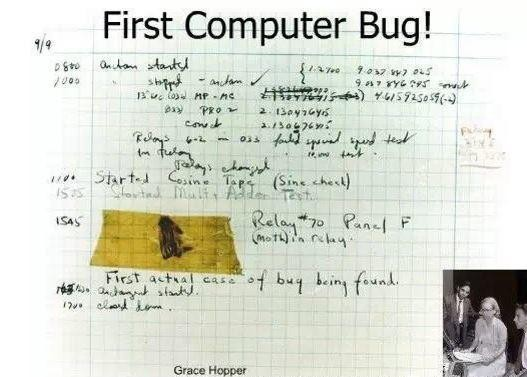 First Computer Bug!
9/9
0800 Antan started
1000 " stopped - antan ✓ { 1.2700 9.037 847 025
9.037 846 995 correct
13"uc (032) MP - MC 4.615925059(-2)
(033) PRO 2 2.130476415
correct 2.130676415
Relays 6-2 in 033 failed special speed test
in relay 10.000 test.
Relays changed
1100 Started Cosine Tape (Sine check)
1525 Started Mult + Adder Test.
1545 Relay #70 Panel F
(moth) in relay.
First actual case of bug being found.
antangent started.
1700 closed down.
Relay
Grace Hopper